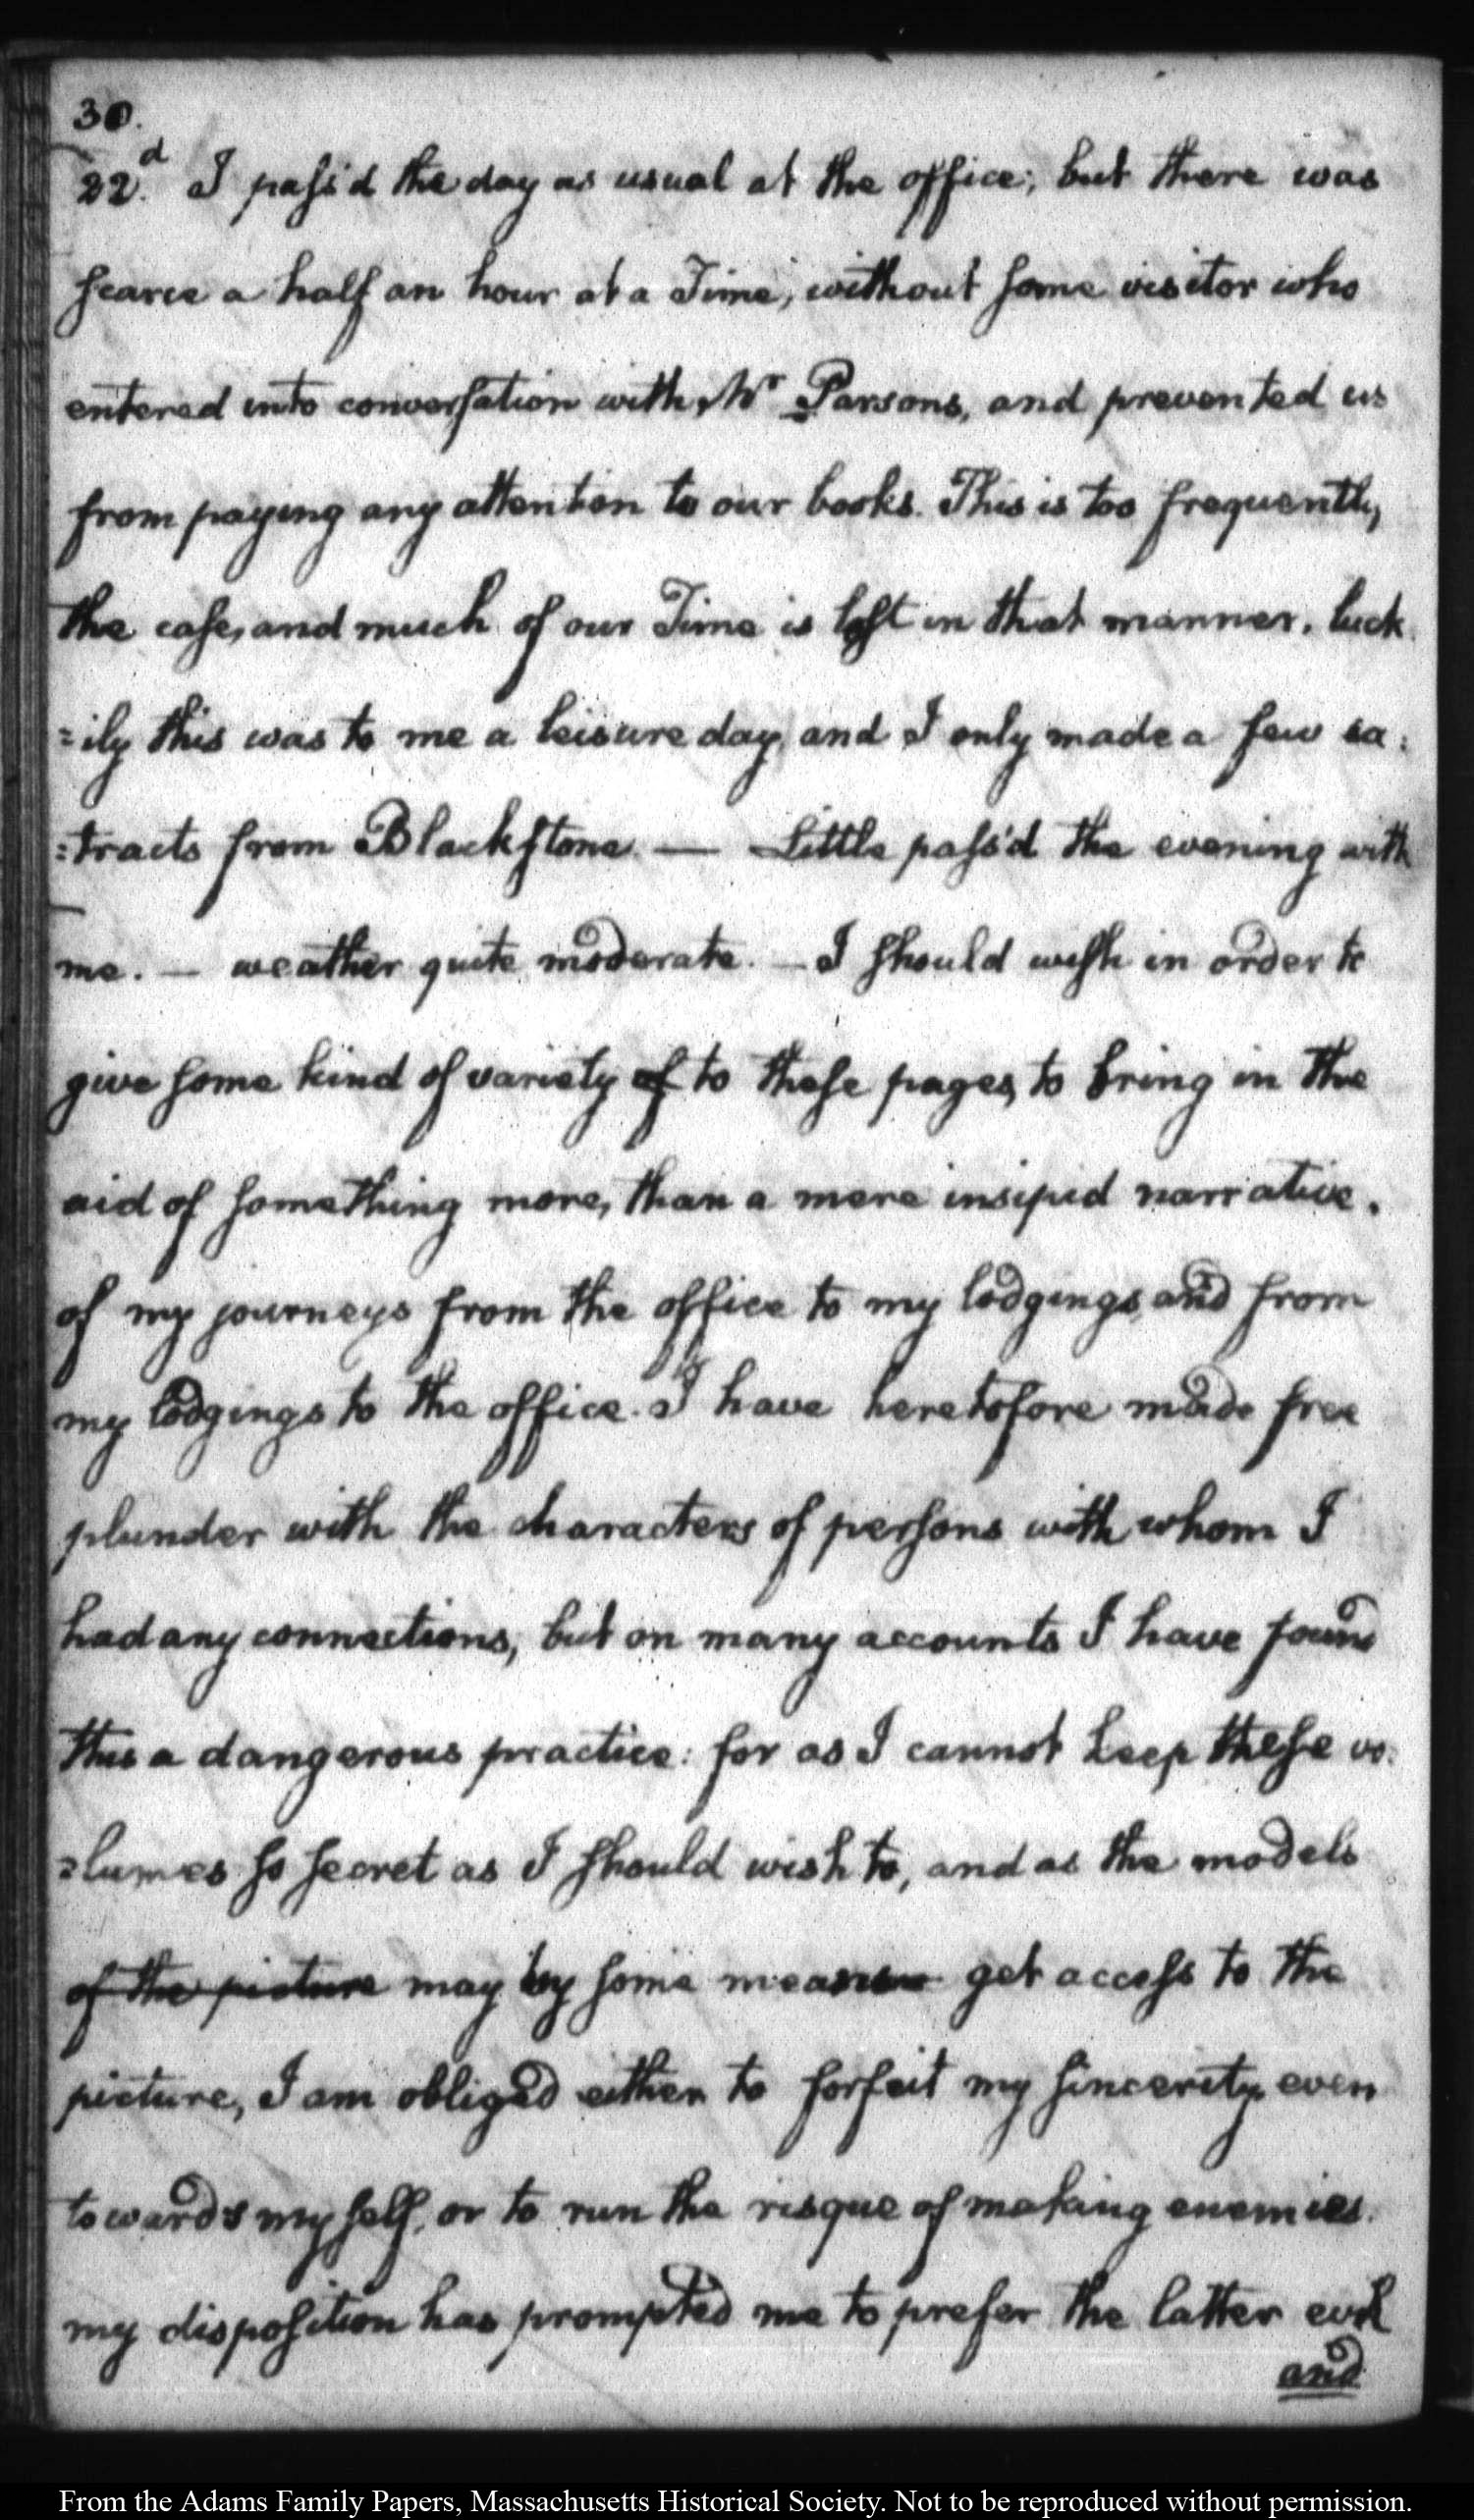 30.
22.d I pass'd the day as usual at the office; but there was
scarce a half an hour at a Time, without some visitor who
entered into conversation with Mr Parsons, and prevented us
from paying any attention to our books. This is too frequently,
the case, and much of our Time is lost in that manner. luck
=ily this was to me a leisure day, and I only made a few ex=
=tracts from Blackstone. — Little pass'd the evening with
me. — weather quite moderate. — I should wish in order to
give some kind of variety of to these pages, to bring in the
aid of something more, than a mere insipid narrative.
of my journeys from the office to my lodgings, and from
my lodgings to the office. I have heretofore made free
plunder with the characters of persons with whom I
had any connections, but on many accounts I have found
this a dangerous practice: for as I cannot keep these vo=
=lumes so secret as I should wish to, and as the models
of the picture may by some means get access to the
picture, I am obliged either to forfeit my sincerity even
towards myself, or to run the risque of making enemies.
my disposition has prompted me to prefer the latter evil
and
From the Adams Family Papers, Massachusetts Historical Society. Not to be reproduced without permission.